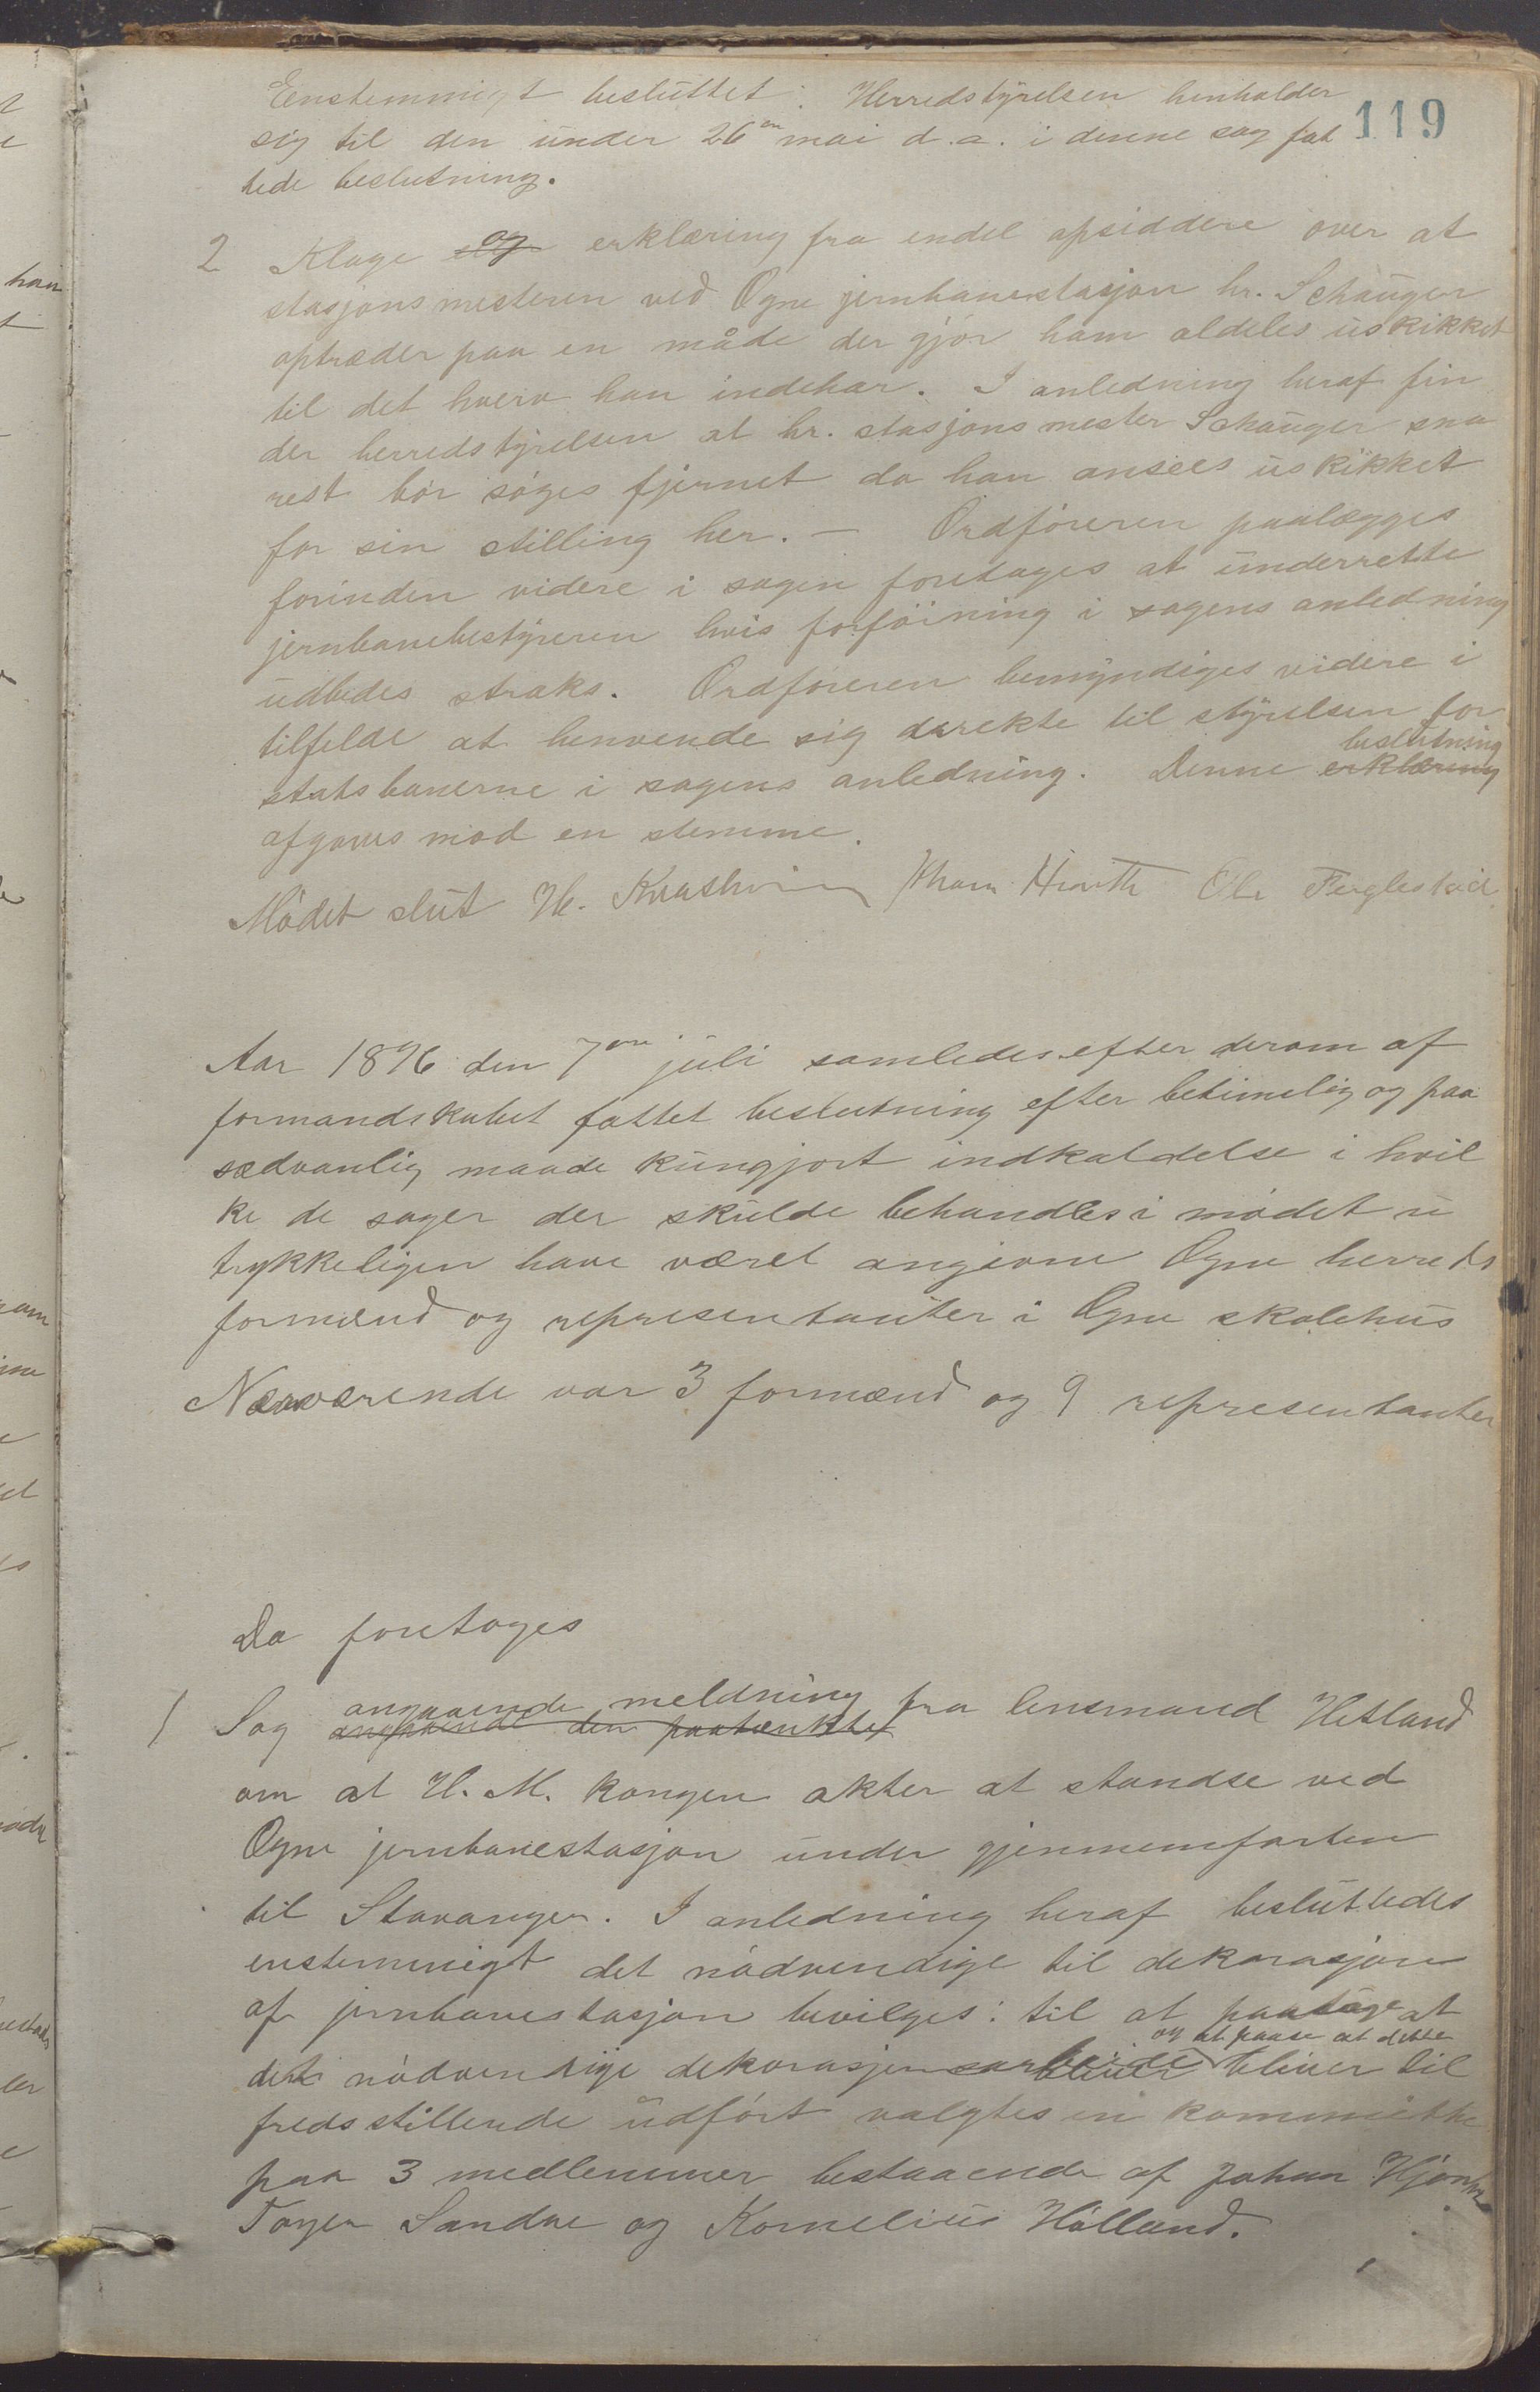 119
Eenstemmigt besluttet: Herredstyrelsen henholder
sig til den under 26en mai d.a. i denne sag fat
tede beslutning.
2 Klage og erklæring fra endel opsiddere over at
stasjonsmesteren ved Ogne jernbanestasjon hr. Schauger
optræder paa en måde der gjør ham aldeles uskikket
til det hverv han indehar. I anledning heraf fin
der herredstyrelsen at hr. stasjonsmester Schauger sna
rest bør søges fjernet da han ansees uskikket
for sin stilling her. — Ordføreren paalægges
forinden videre i sagen foretages at underrette
jernbanebestyreren hvis forføining i sagens anledning
udbedes straks. Ordføreren bemyndiges videre i
tilfelde at henvende sig direkte til styrelsen for
statsbanerne i sagens anledning. Denne erklæring beslutning
afgaves mod en stemme.
Mødet slut Ole Fuglestad
Aar 1896 den 7en juli samledes efter derom af
formandskabet fattet beslutning efter betimelig og paa
sædvanlig maade kungjort indkaldelse i hvil
ke de sager der skulde behandles i mødet u
trykkeligen have været angivne Ogne herreds
formænd og representanter i Ogne skolehus
Nærværende var 3 formænd og 9 representanter
Da foretoges
1 Sag angaaende den paatænkte angaaende meldning fra lensmand Hetland
om at H. M. kongen akter at standse ved
Ogne jernbanestasjon under gjennemfarten
til Stavanger. I anledning heraf besluttedes
enstemmigt det nødvendige til dekorasjon
af jernbanestasjon bevilges: til at paasøge at
det nødvendige dekorasjonsarbeide og at paase at dette bliver til
fredsstillende udført valgtes en kommitte
paa 3 medlemmer bestaaende af Johan
Torger Sandve og Kornelius Hølland.